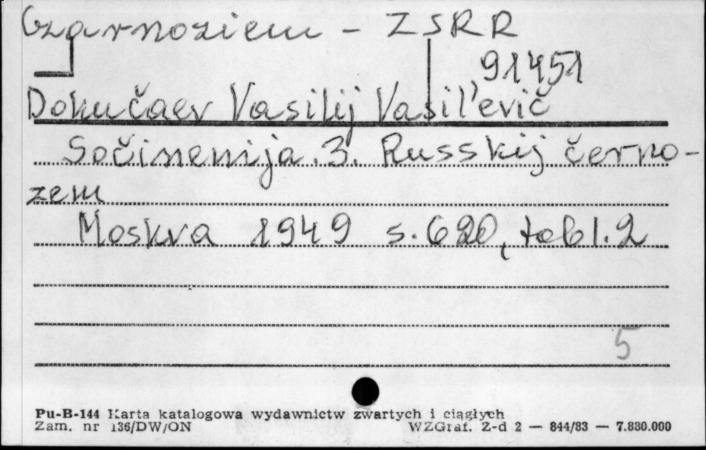 Czarnoziem - ZSRR
91451
Dokučaev Vasilij Vasil'evič
Sočinenija. 3. Russkij černo-
zem
Moskva 1949 s. 620, tabl. 2
5
Pu-B-144 Karta katalogowa wydawnictw zwartych i ciągłych
Zam. nr 136/DW/ON WZGraf. Z-d 2 — 844/83 — 7.880.000